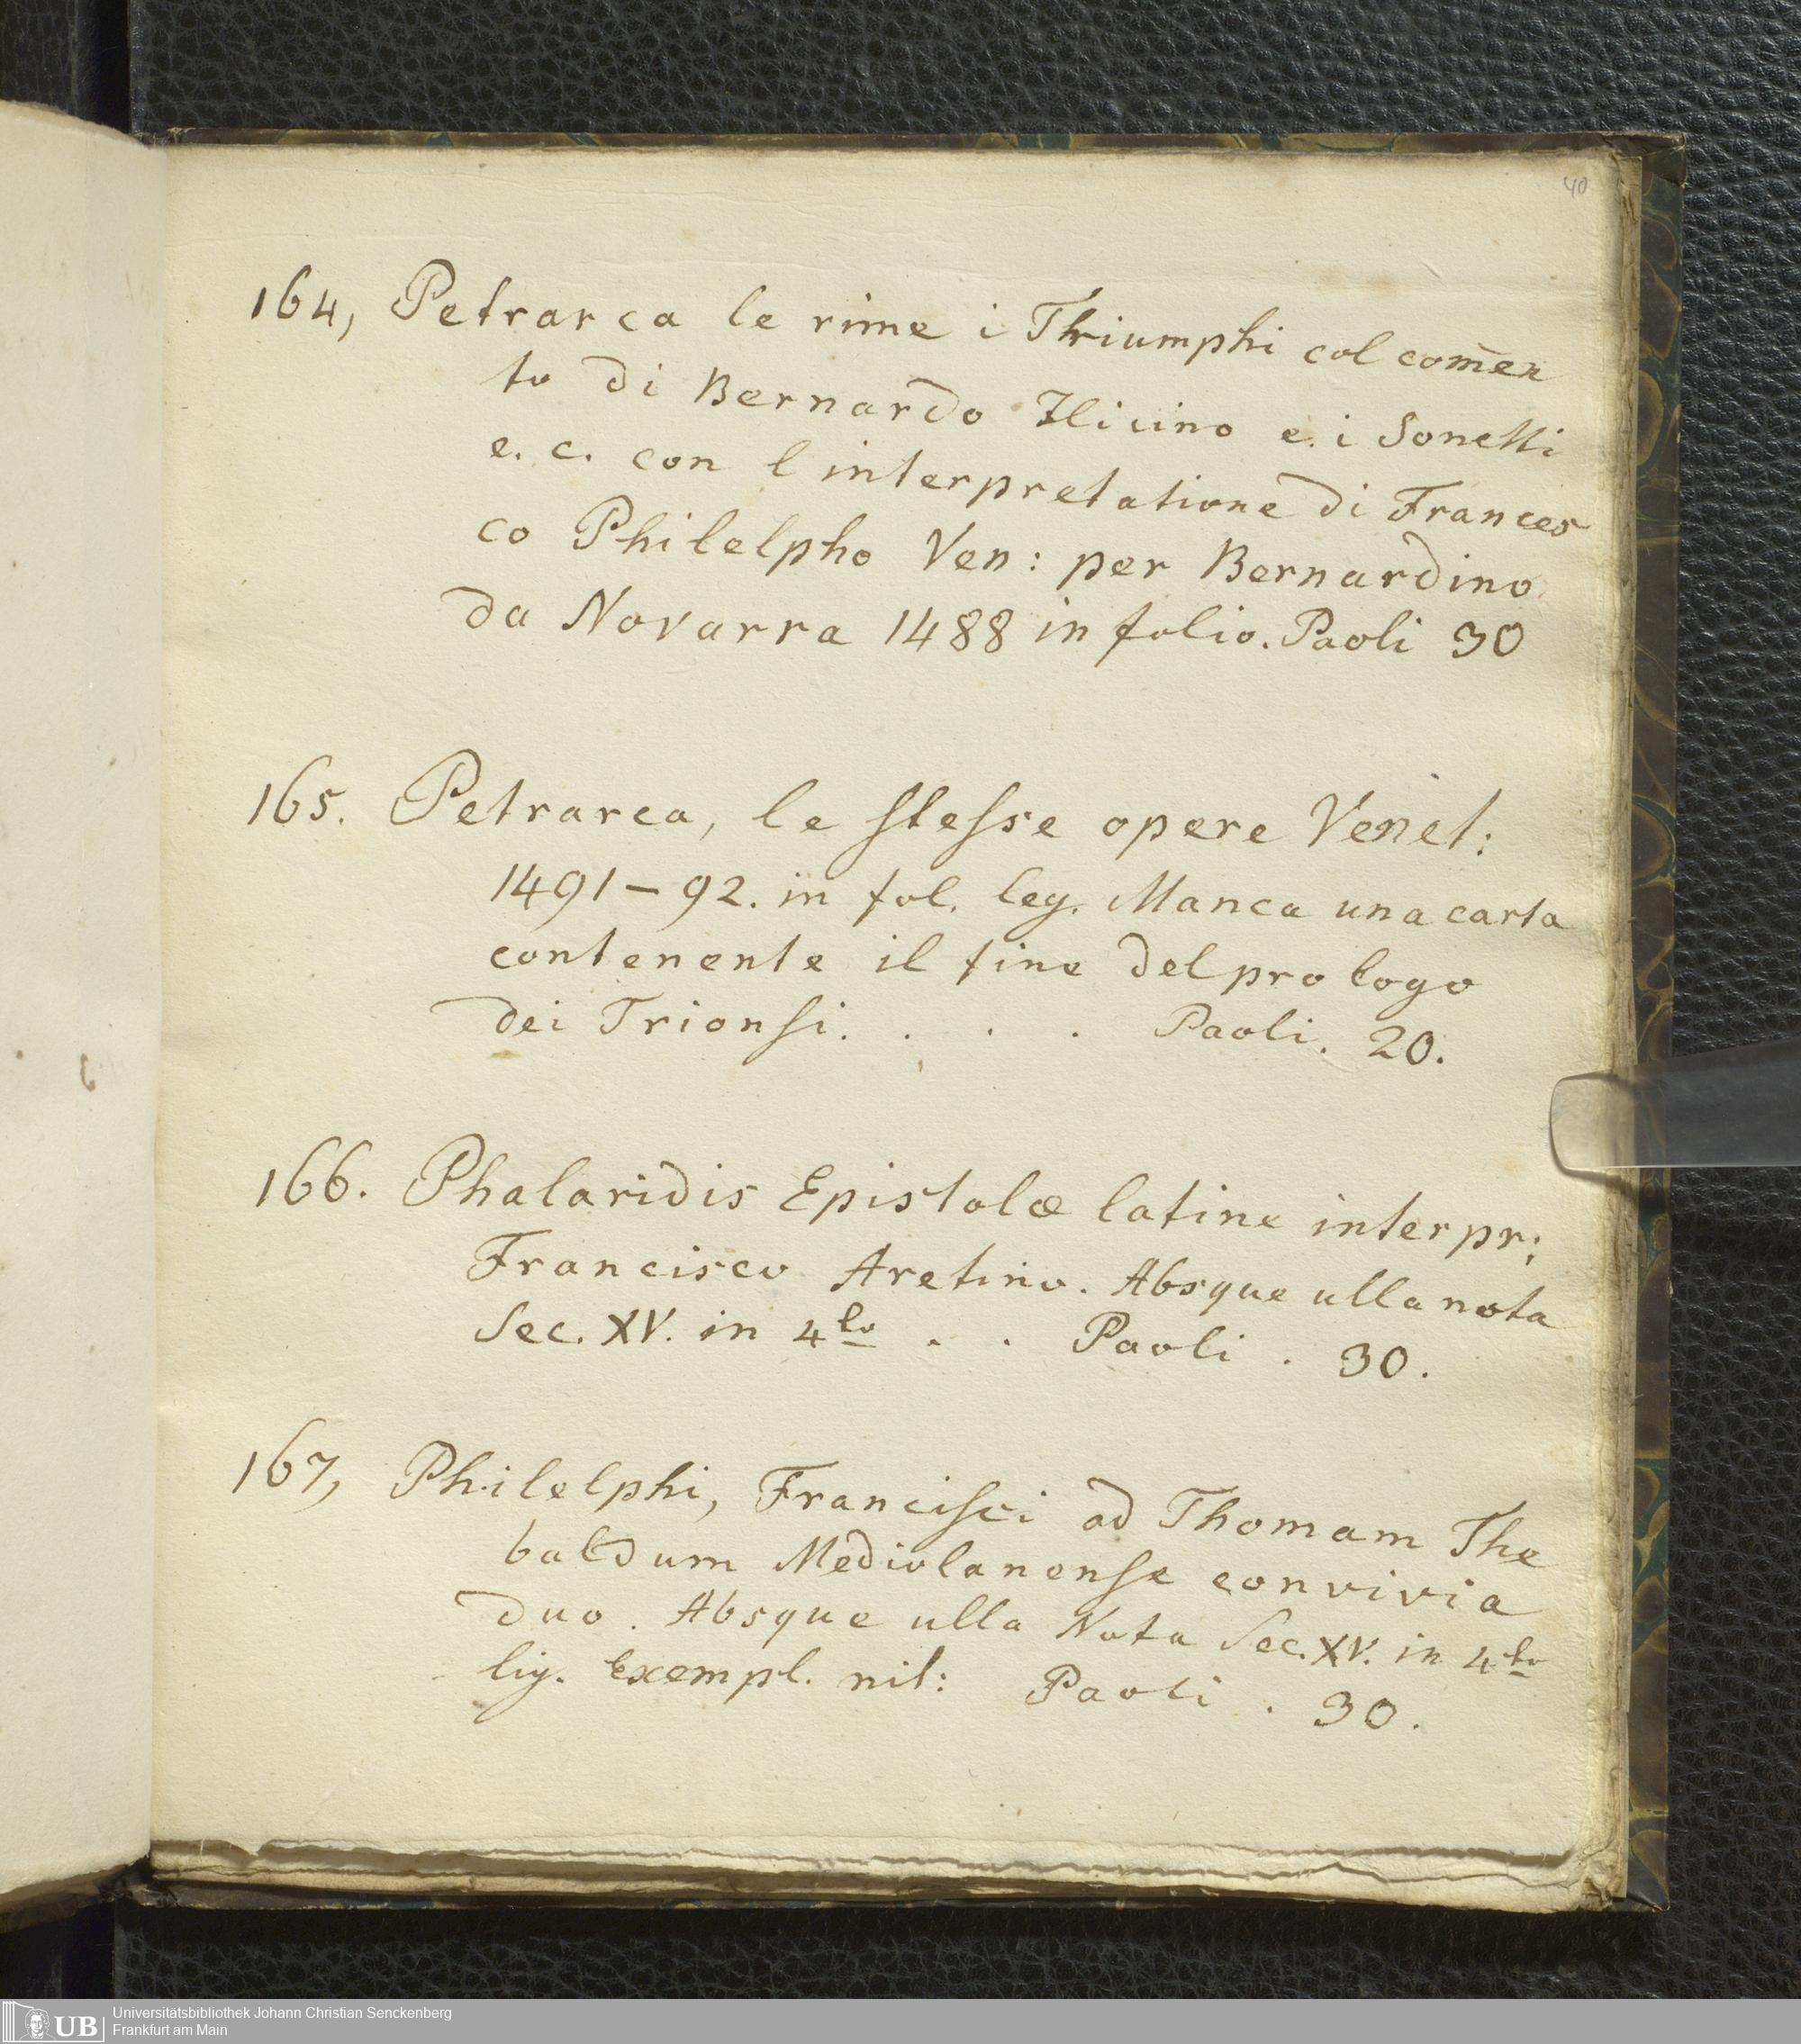 40
164, Petrarca le rime i Thriumphi col com̄en
to di Bernardo Ilicino e. i Sonetti
e. c. con l interpretatione di Frances
co Philelpho Ven: per Bernardino
da Novarra 1488 in folio. Paoli 30
165. Petrarca, le stesse opere Venet:
1491 – 92. in fol. leg. Manca una carta
contenente il fine del prologo
dei Trionfi. . . . Paoli. 20.
166. Phalaridis Epistolæ latine interpr:
Francisco Aretino. Absque ulla nota
Sec. XV. in 4to . . Paoli . 30.
167, Philelphi, Francisci ad Thomam The
baldum Mediolanense convivia
duo. Absque ulla Nota Sec. XV. in 4to
lig. Exempl. nit: Paoli . 30.
UB Universitätsbibliothek Johann Christian Senckenberg
Frankfurt am Main